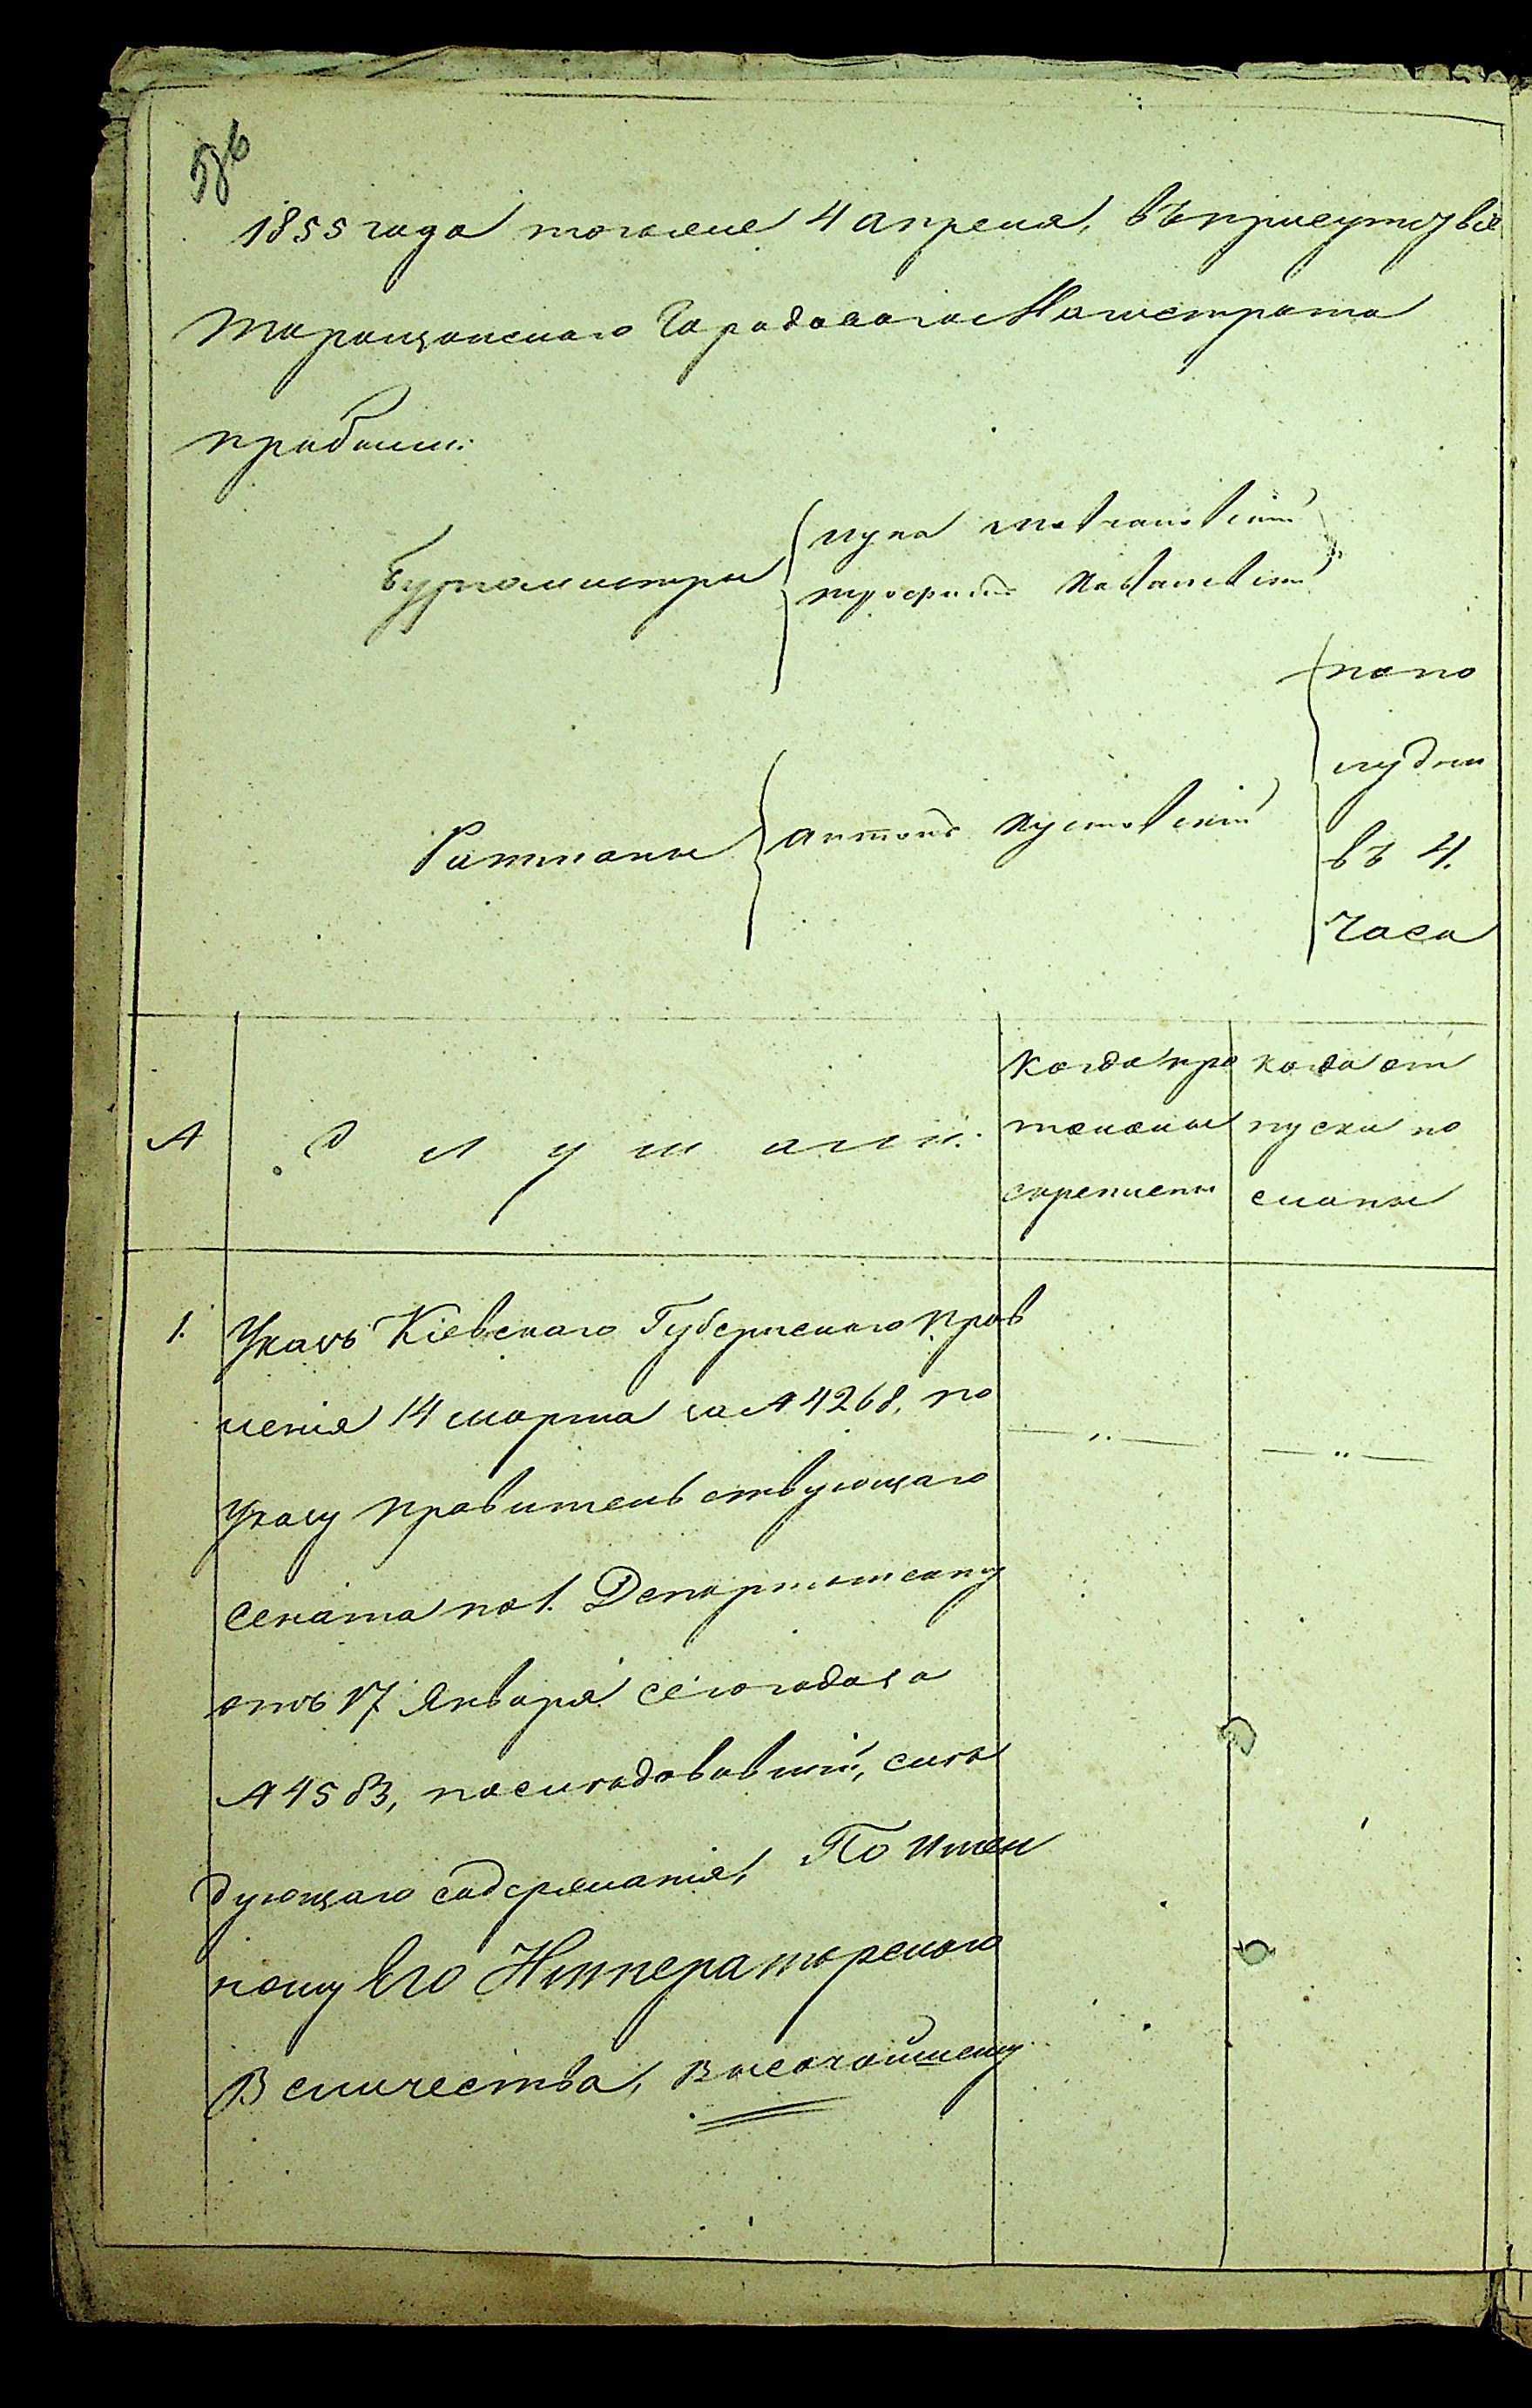 1855 года тогоже 4 апреля, въ присутствіе
Таращанскаго Городоваго Магистрата
прибыли:
Бургомистры
Лука
Трофимъ
по по
лудни
Ратманы
Антонъ Пустовскій
въ 4.
часа
№
Слушали:
Когда про
токолы
скреплены
когда от
пуски по
сланы
1. Указъ Кіевскаго Губернскаго Прав
ленія 14 марта за № 4268, по
Указу Правительствующаго
Сената по 1. Департаменту
отъ 17 Января сего года за
№ 4583, последовавшій, сле
дующаго содержанія, По Имен
ному Его Императорскаго
Величества, Высочайшему